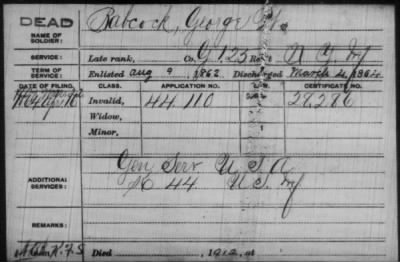 DEAD
NAME OF SOLDIER:
Babcock, George
SERVICE:
Late rank, Co. G, 123 Reg't N. Y. Inf
TERM OF SERVICE:
Enlisted Aug 9, 1862. Discharged March 4, 1864
DATE OF FILING. CLASS. APPLICATION NO. CERTIFICATE NO.
Invalid, 44 110 28,286
Widow,
Minor,
ADDITIONAL SERVICES:
Gen Serv U S A
44 U.S. Inf
REMARKS:
Died 1912, at